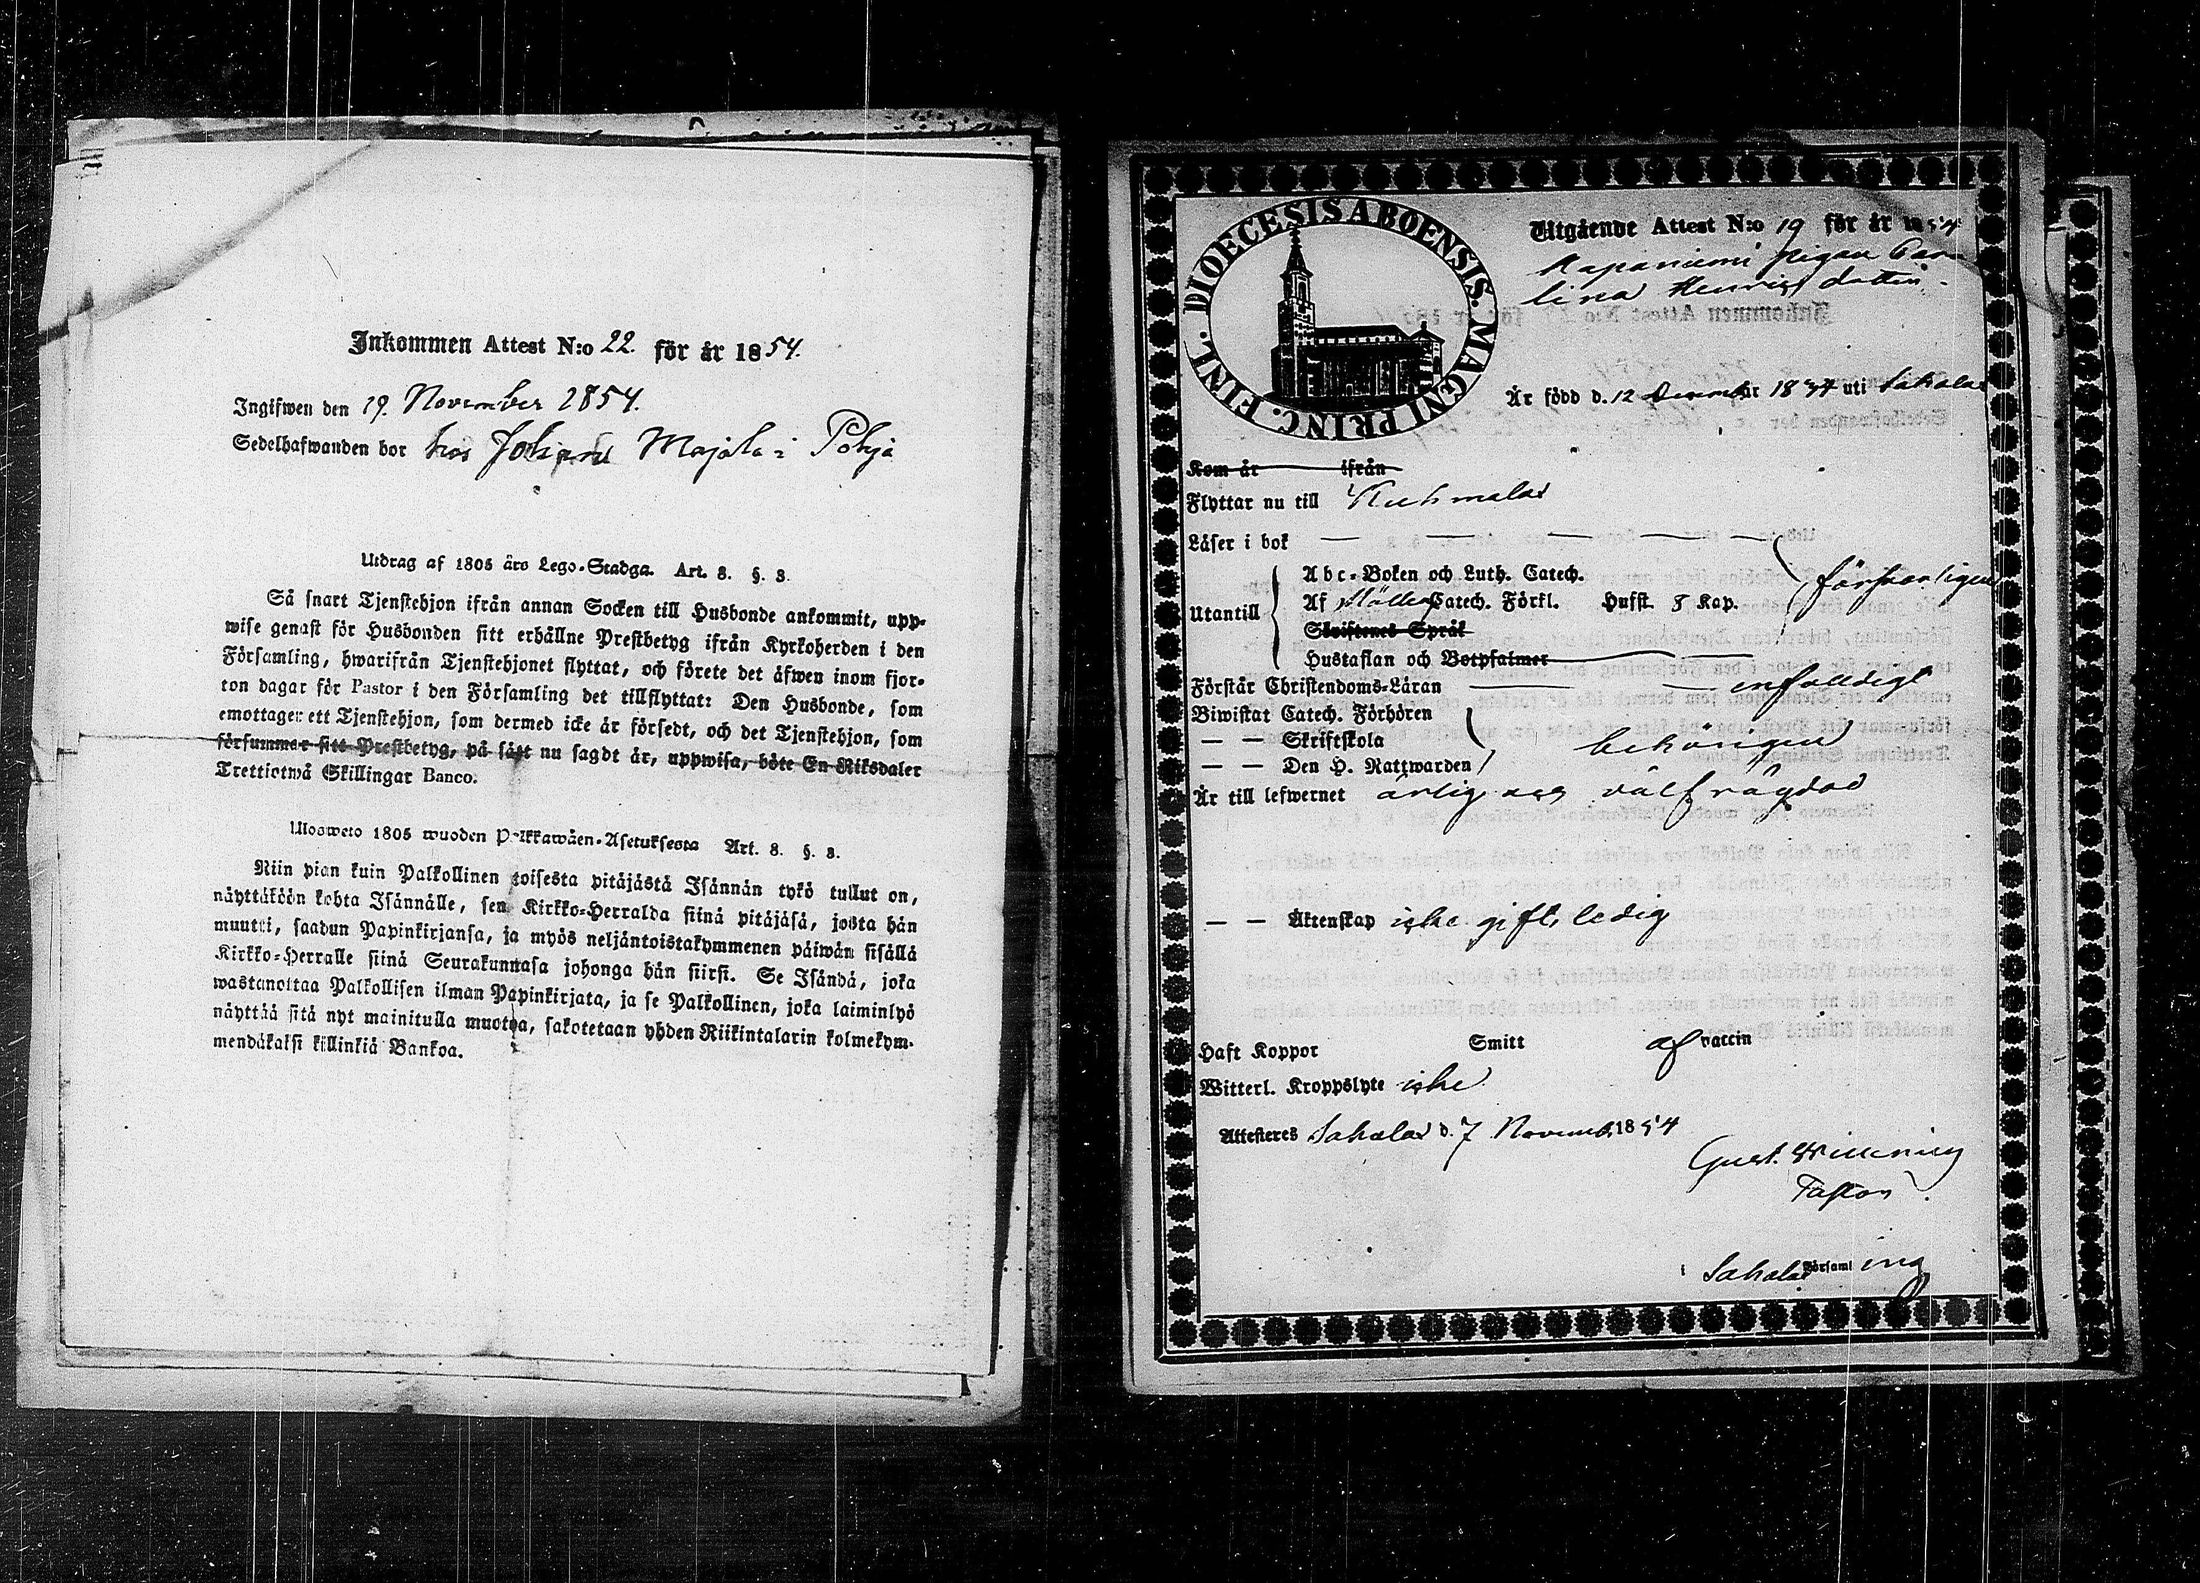 Inkommen Attest N:o 22. för år 1854.
Ingifwen den 19. November 1854.
Sedelhafwanden bor hos Johan Majala i Pohja
Utdrag af 1805 års Lego-Stadga. Art. 8. §. 3.
Så snart Tjenstehjon ifrån annan Socken till Husbonde ankommit, upp-
wise genast för Husbonden sitt erhållne Prestbetyg ifrån Kyrkoherden i den
Församling, hwarifrån Tjenstehjonet flyttat, och förete det äfwen inom fjor-
ton dagar för Pastor i den Församling det tillflyttat: Den Husbonde, som
emottager ett Tjenstehjon, som dermed icke är försedt, och det Tjenstehjon, som
försummar sitt Prestbetyg, på sätt nu sagdt är, uppwisa, böte En Riksdaler
Trettiotwå Skillingar Banco.
Ulosweto 1805 wuoden Palkkawäen-Asetuksesta Art. 8. §. 3.
Niin pian kuin Palkollinen toisesta pitäjästä Isännän tykö tullut on,
näyttäköön kohta Isännälle, sen Kirkko-Herralda siinä pitäjäsä, josta hän
muutti, saadun Papinkirjansa, ja myös neljäntoistakymmenen päiwän sisällä
Kirkko-Herralle siinä Seurakunnasa johonga hän siirsi. Se Isändä, joka
wastanottaa Palkollisen ilman Papinkirjata, ja se Palkollinen, joka laiminlyö
näyttää sitä nyt mainitulla muotoa, sakotetaan yhden Riikintalarin kolmekym-
mendäkaksi killinkiä Bankoa.
DIOECESIS ABOENSIS. MAGNI PRINC. FINL.
Utgående Attest N:o 19 för år 1854
Rapaniemi pigan Caro
lina Henrigsdotter
Är född d. 12 December 1834 uti Sahalax
Kom år ifrån
Flyttar nu till Kuhmalax
Läser i bok
Abc-Boken och Luth. Catech. försvarligen
Utantill Af Möllers Catech. Förkl. Hufst. 8 Kap.
Skriftenes Språk
Hustaflan och Botpsalmer
Förstår Christendoms-Läran enfaldigt
Biwistat Catech. Förhören
— — Skriftskola behörigen
— — Den H. Nattwarden
Är till lefwernet ärlig och välfrägdad
— — Äktenskap icke gift, ledig
Haft Koppor Smitt af vaccin
Witterl. Kroppslyte icke
Attesteres Sahalax d. 7 Novemb. 1854
Gust. Winning
Pastor.
i Sahalax Församling